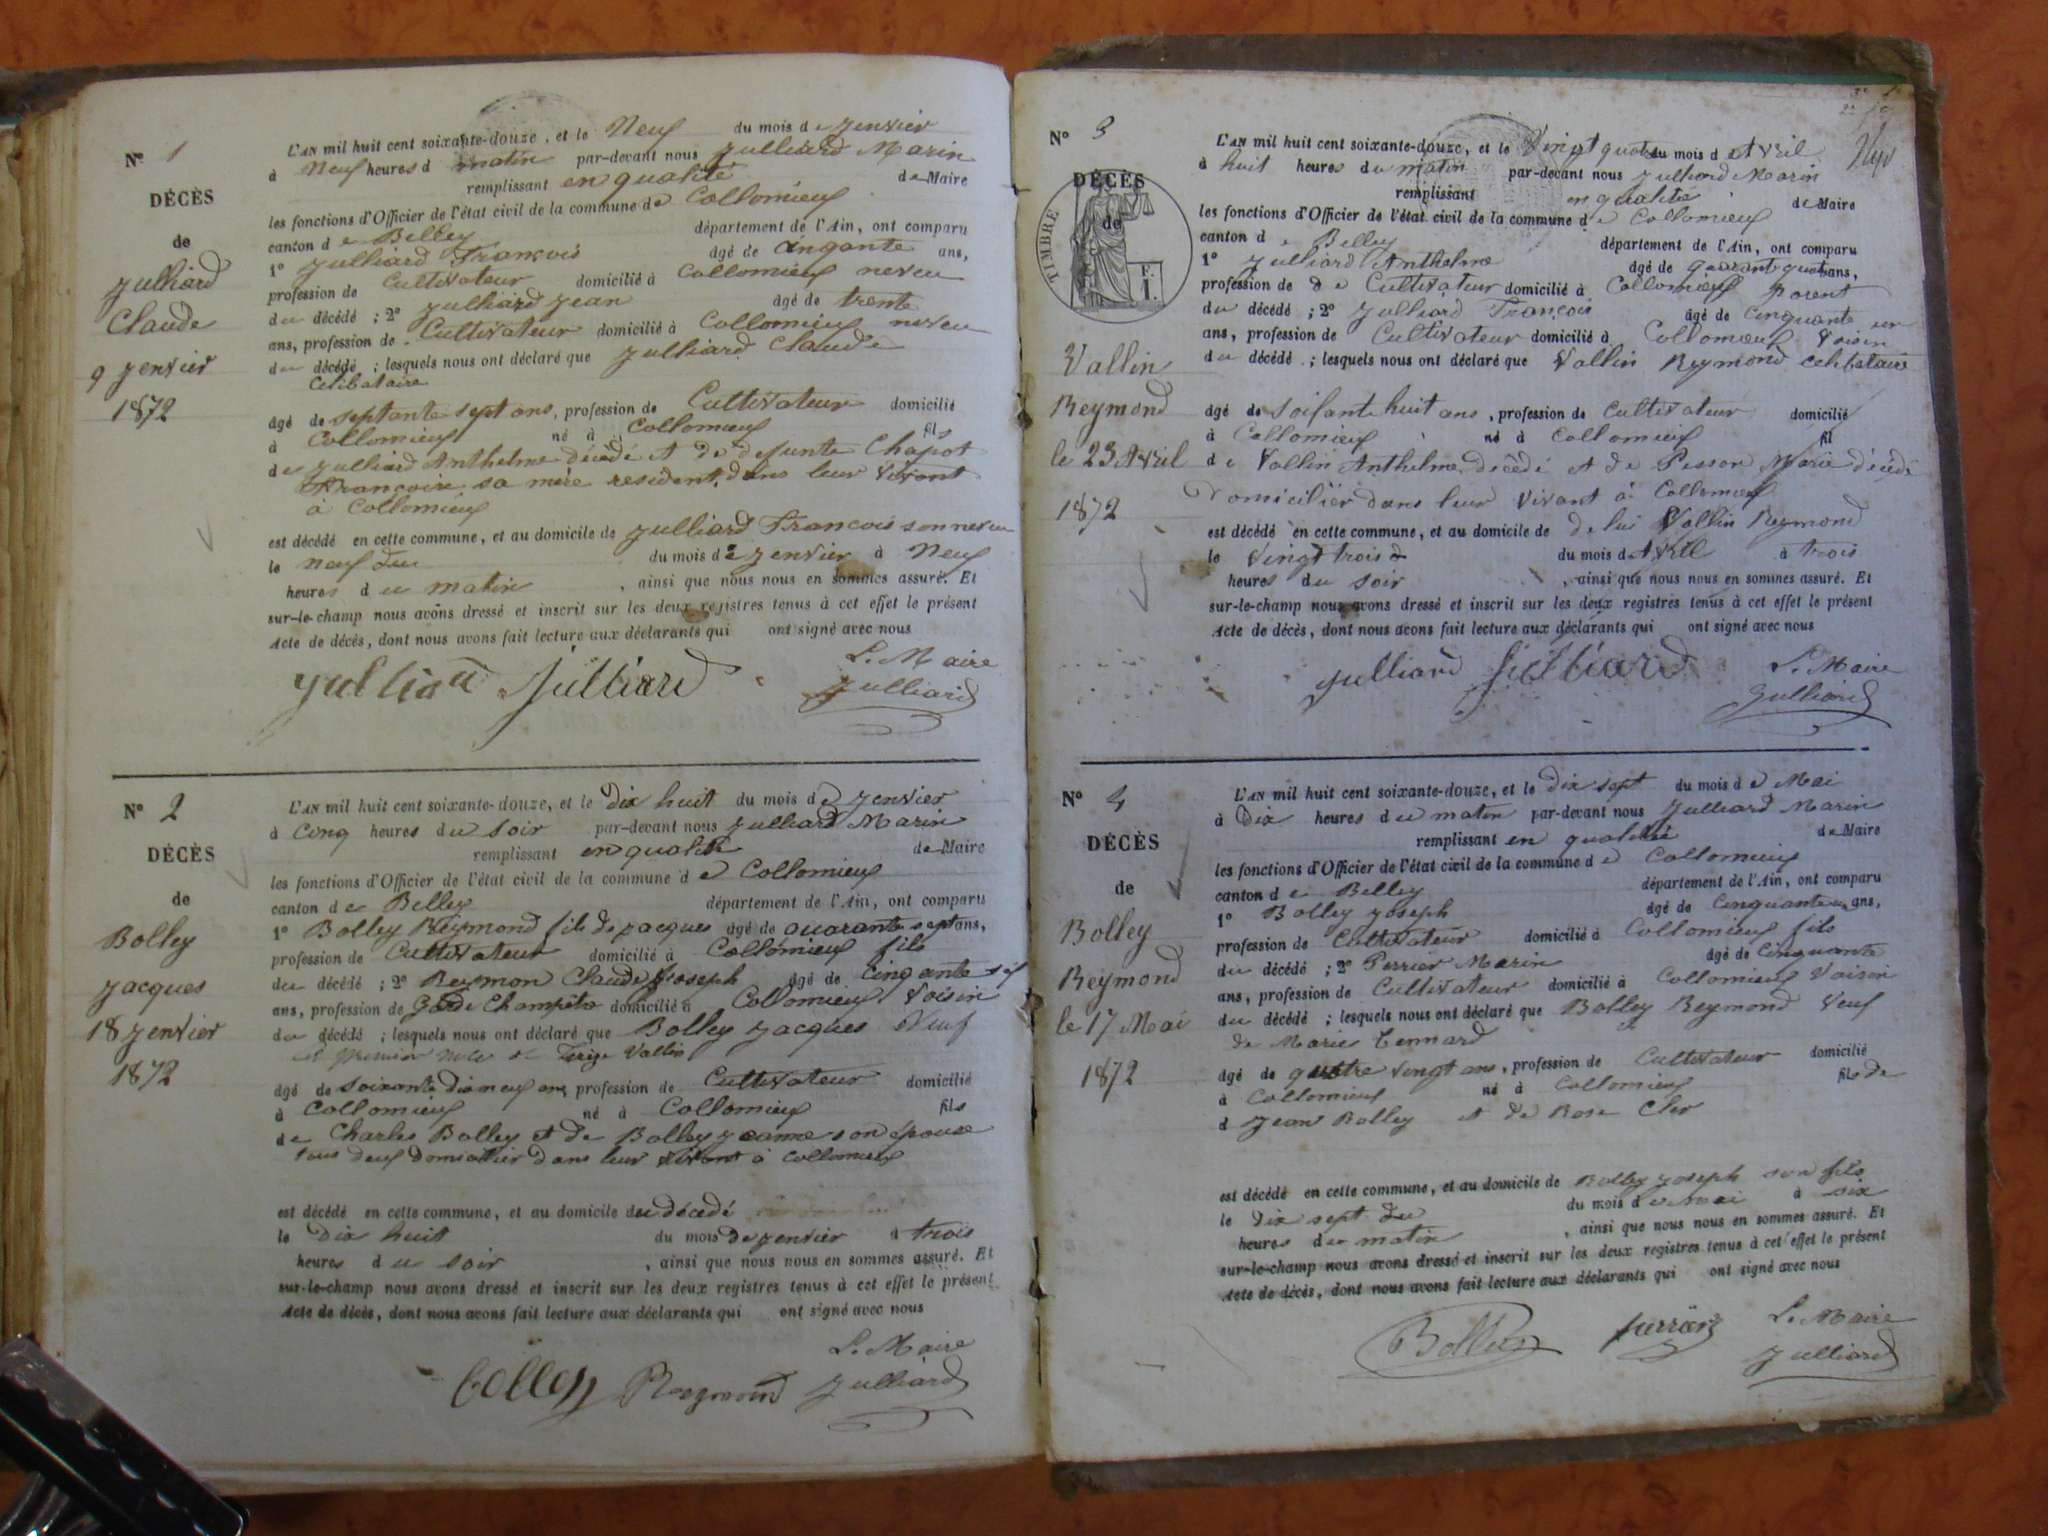 N° 1
DÉCÈS
de
Julliard
Claude
9 Jenvier
1872
L'AN mil huit cent soixante-douze, et le Neuf du mois de Jenvier
à Neuf heures d matin par-devant nous Julliard Marin
remplissant en qualité de Maire
les fonctions d'Officier de l'état civil de la commune de Collomieux
canton de Belley département de l'Ain, ont comparu
1° Julliard Francois âgé de cinqante ans,
profession de Cultivateur domicilié à Collomieux neveu
du décédé ; 2° Julliard Jean âgé de trente
ans, profession de Cultivateur domicilié à Collomieux neveu
du décédé ; lesquels nous ont déclaré que Julliard Claude
Celibataire
âgé de septante sept ans, profession de Cultivateur domicilié
à Collomieux né à Collomieux fils
de Julliard Anthelme décédé et de defunte Chapot
Francoise sa mère resident dans leur vivant
à Collomieux
est décédé en cette commune, et au domicile de Julliard Francois son neveu
le neuf du du mois de Jenvier à Neuf
heures du matin , ainsi que nous nous en sommes assuré. Et
sur-le-champ nous avons dressé et inscrit sur les deux registres tenus à cet effet le présent
Acte de décès, dont nous avons fait lecture aux déclarants qui ont signé avec nous
Le Maire
Julliard Julliard Julliard
N° 2
DÉCÈS
de
Bolley
Jacques
18 Jenvier
1872
L'AN mil huit cent soixante-douze, et le dix huit du mois de Jenvier
à Cinq heures du soir par-devant nous Julliard Marin
remplissant en qualité de Maire
les fonctions d'Officier de l'état civil de la commune de Collomieux
canton de Belley département de l'Ain, ont comparu
1° Bolley Reymond fils de Jacques âgé de quarante sept ans,
profession de Cultivateur domicilié à Collomieux fils
du décédé ; 2° Reymon Claude Joseph âgé de Cinqante
ans, profession de Garde Champêtre domicilié à Collomieux Voisin
du décédé ; lesquels nous ont déclaré que Bolley Jacques Veuf
Vallin
âgé de soixante dix neuf ans profession de Cultivateur domicilié
à Collomieux né à Collomieux fils
de Charles Bolley et de Bolley Jeanne son épouse
tous deux domicilier dans leur vivant à Collomieux
est décédé en cette commune, et au domicile du décédé
le Dix huit du mois de Jenvier à trois
heures du soir , ainsi que nous nous en sommes assuré. Et
sur-le-champ nous avons dressé et inscrit sur les deux registres tenus à cet effet le présent
Acte de décès, dont nous avons fait lecture aux déclarants qui ont signé avec nous
Le Maire
Bolley Reymond Julliard
N° 3
DÉCÈS
de
TIMBRE
F.
I.
Vallin
Reymond
le 23 Avril
1872
L'AN mil huit cent soixante-douze, et le Vingt quatre du mois d Avril
à huit heures du matin par-devant nous Julliard Marin
remplissant en qualité de Maire
les fonctions d'Officier de l'état civil de la commune de Collomieux
canton de Belley département de l'Ain, ont comparu
1° Julliard Anthelme âgé de quarante quatre ans,
profession de de Cultivateur domicilié à Collomieux Parent
du décédé ; 2° Julliard François âgé de cinquante un
ans, profession de Cultivateur domicilié à Collomieux Voisin
du décédé ; lesquels nous ont déclaré que Vallin Reymond celibataire
âgé de Soixante huit ans, profession de Cultivateur domicilié
à Collomieux né à Collomieux fil
de Vallin Anthelme décédé et de Pesson Marie décédé
Domicilier dans leur vivant à Collomieux
est décédé en cette commune, et au domicile de de lui Vallin Reymond
le Vingt trois d du mois d Avril à trois
heures du soir , ainsi que nous nous en sommes assuré. Et
sur-le-champ nous avons dressé et inscrit sur les deux registres tenus à cet effet le présent
Acte de décès, dont nous avons fait lecture aux déclarants qui ont signé avec nous
Le Maire
Julliard Julliard Julliard
N° 4
DÉCÈS
de
Bolley
Reymond
le 17 Mai
1872
L'AN mil huit cent soixante-douze, et le dix sept du mois de Mai
à Dix heures du matin par-devant nous Julliard Marin
remplissant en qualité de Maire
les fonctions d'Officier de l'état civil de la commune de Collomieux
canton de Belley département de l'Ain, ont comparu
1° Bolley Joseph âgé de Cinquante un ans,
profession de Cultivateur domicilié à Collomieux fils
du décédé ; 2° Perrier Marin âgé de Cinquante
ans, profession de Cultivateur domicilié à Collomieux Voisin
du décédé ; lesquels nous ont déclaré que Bolley Reymond Veuf
de Marie
âgé de quatre vingt ans, profession de Cultivateur domicilié
à Collomieux né à Collomieux fils de
d Jean Bolley et de Rose Cler
est décédé en cette commune, et au domicile de Bolley Joseph son fils
le Dix sept du du mois de Mai à six
heures du matin , ainsi que nous nous en sommes assuré. Et
sur-le-champ nous avons dressé et inscrit sur les deux registres tenus à cet effet le présent
Acte de décès, dont nous avons fait lecture aux déclarants qui ont signé avec nous
Le Maire
Bolley perrier Julliard